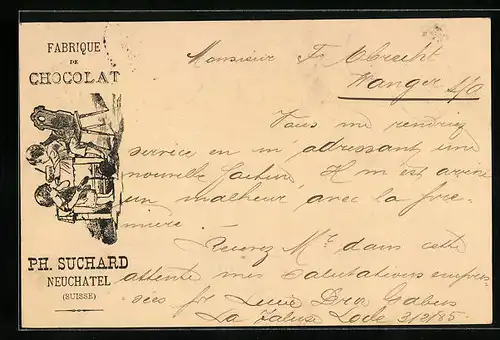 FABRIQUE
DE
CHOCOLAT
PH. SUCHARD
NEUCHATEL
(SUISSE)
Monsieur Fs Obrecht
Wangen s/A
Vous me rendriez
service en m'adressant une
nouvelle facture, Il m'est arrivé
un malheur avec la pre-
mière.
Recevez Mr dans cette
attente mes salutations empres-
sées pr Lucie Droz Gabus
La Jaluse Locle 3/3/85.